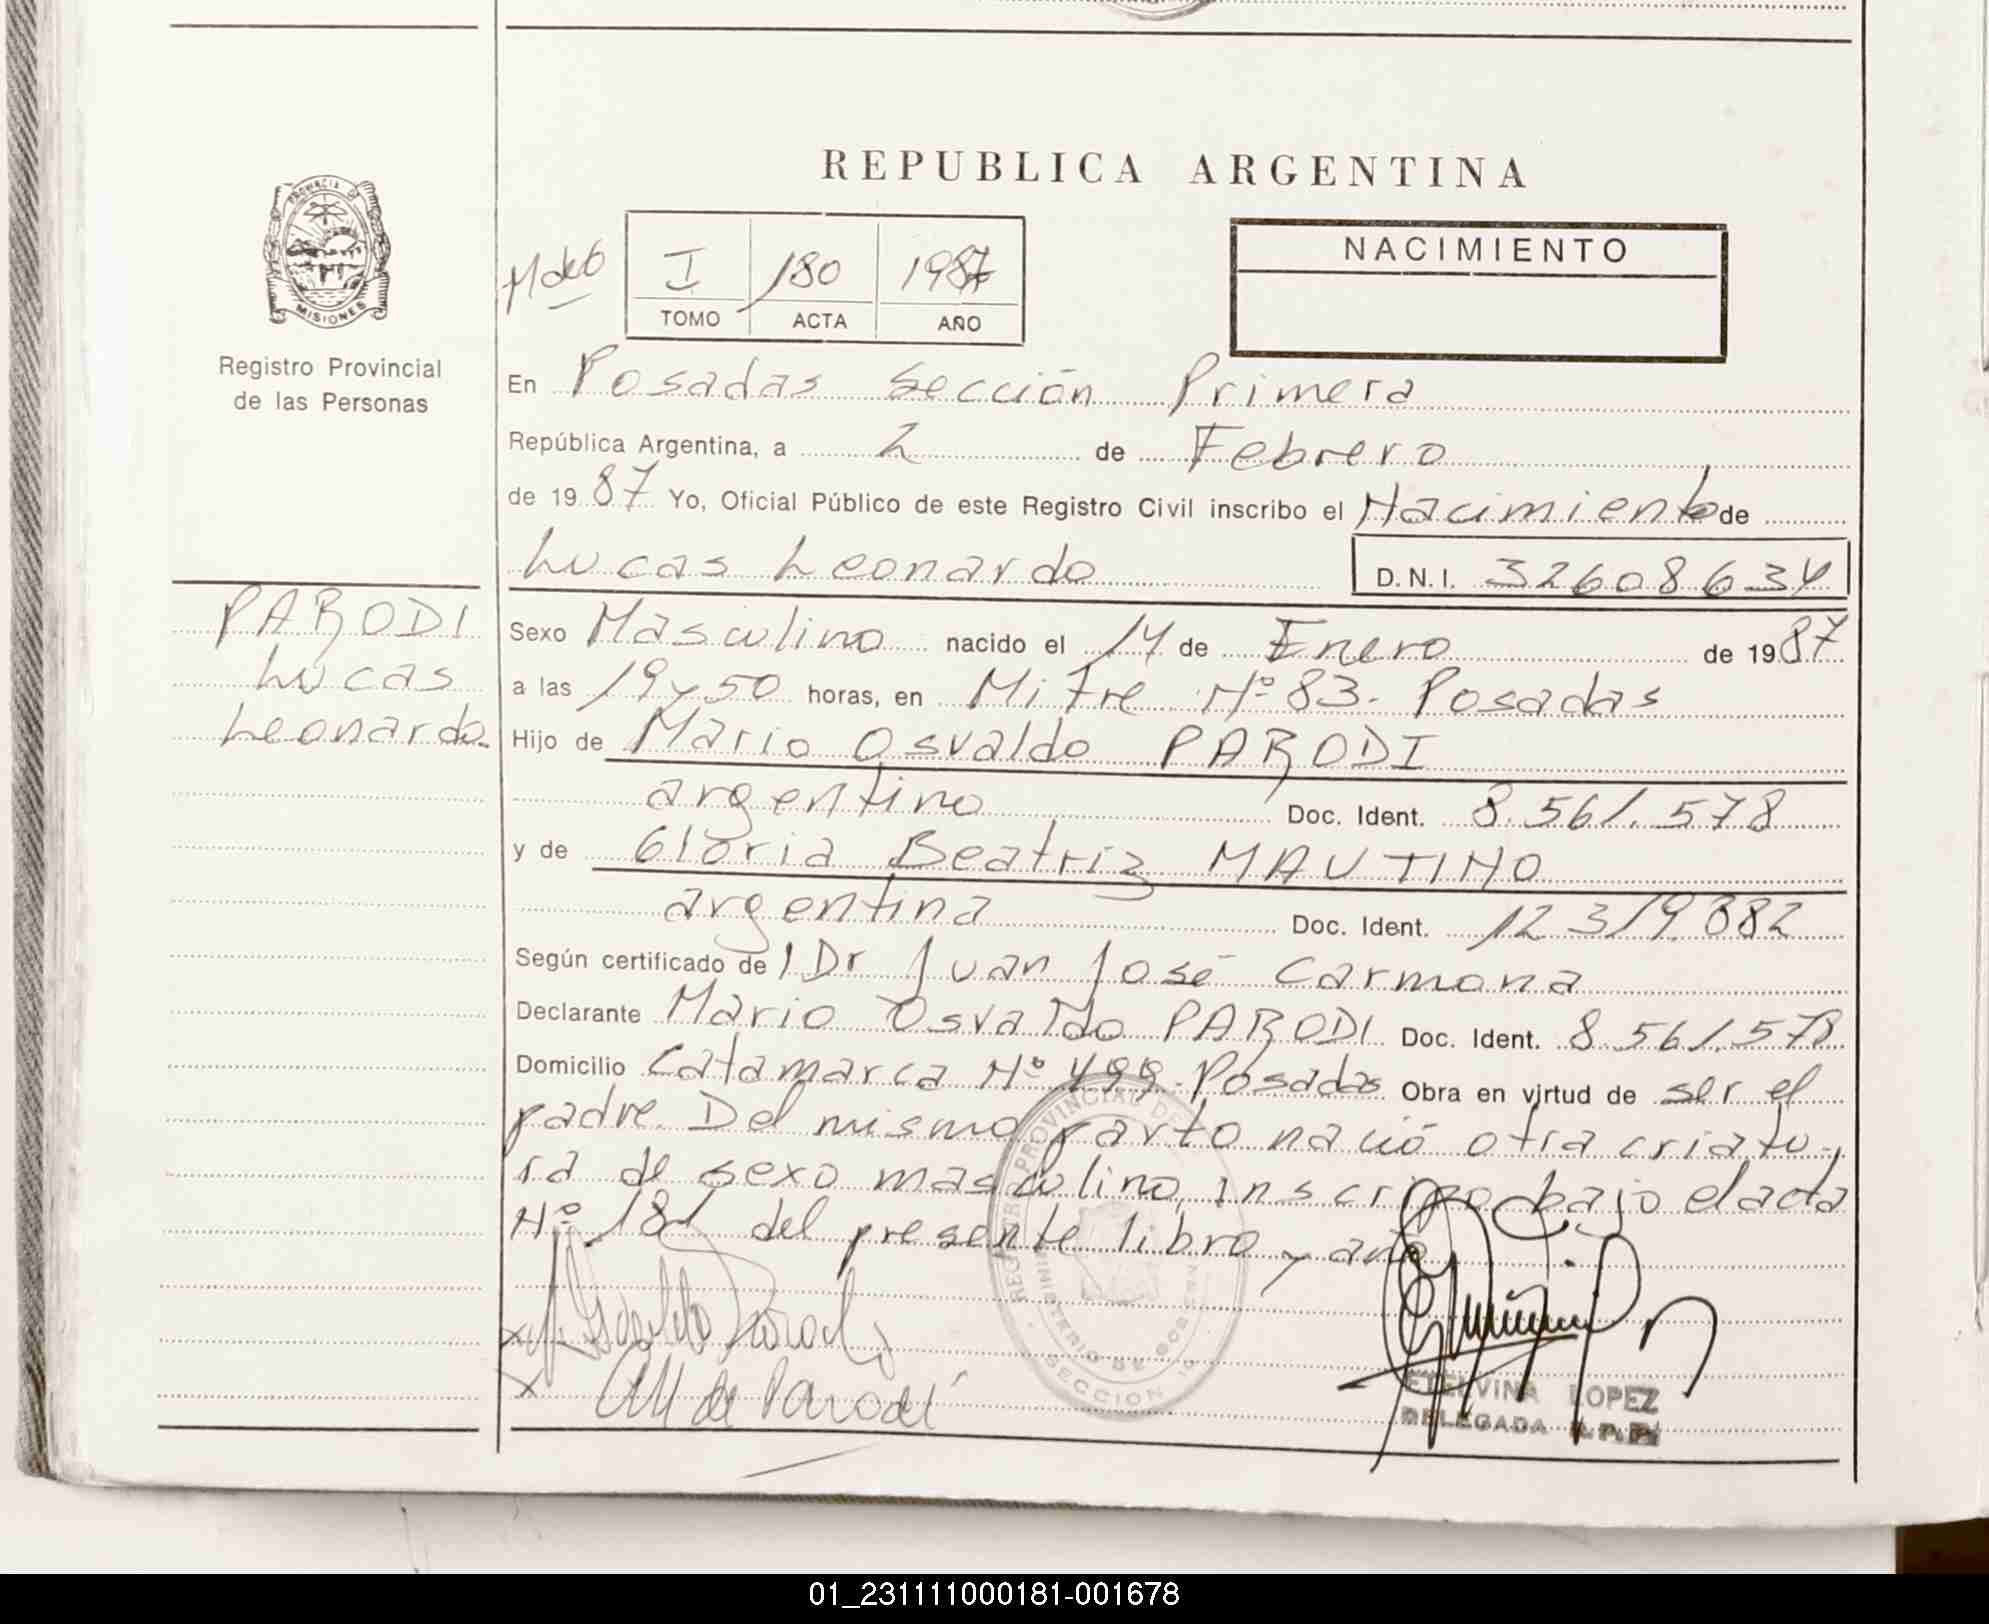 REPUBLICA ARGENTINA
PROVINCIA DE
MISIONES
Registro Provincial
de las Personas
I 180 1987
TOMO ACTA AÑO
NACIMIENTO
En Posadas Sección Primera
República Argentina, a 2 de Febrero
de 1987 Yo, Oficial Público de este Registro Civil inscribo el Nacimiento de
Lucas Leonardo D.N.I. 32608634
PARODI
Lucas
Leonardo.
Sexo Masculino nacido el 14 de Enero de 1987
a las 19 y 50 horas, en Mitre Nº 83. Posadas
Hijo de Mario Osvaldo PARODI
argentino Doc. Ident. 8.561.578
y de Gloria Beatriz MAUTINO
argentina Doc. Ident. 12 319.882
Según certificado del Dr Juan José Carmona
Declarante Mario Osvaldo PARODI Doc. Ident. 8.561.578
Domicilio Catamarca Nº 499. Posadas Obra en virtud de ser el
padre. Del mismo parto nació otra criatu-
ra de sexo masculino, inscripto bajo el acta
Nº 181 del presente libro y año
REGISTRO PROVINCIAL DE
MINISTERIO DE GOBIERNO
SECCION 1º
x Osvaldo Parodi
x GM de Parodi
ETELVINA LOPEZ
DELEGADA R.P.P.
01_231111000181-001678